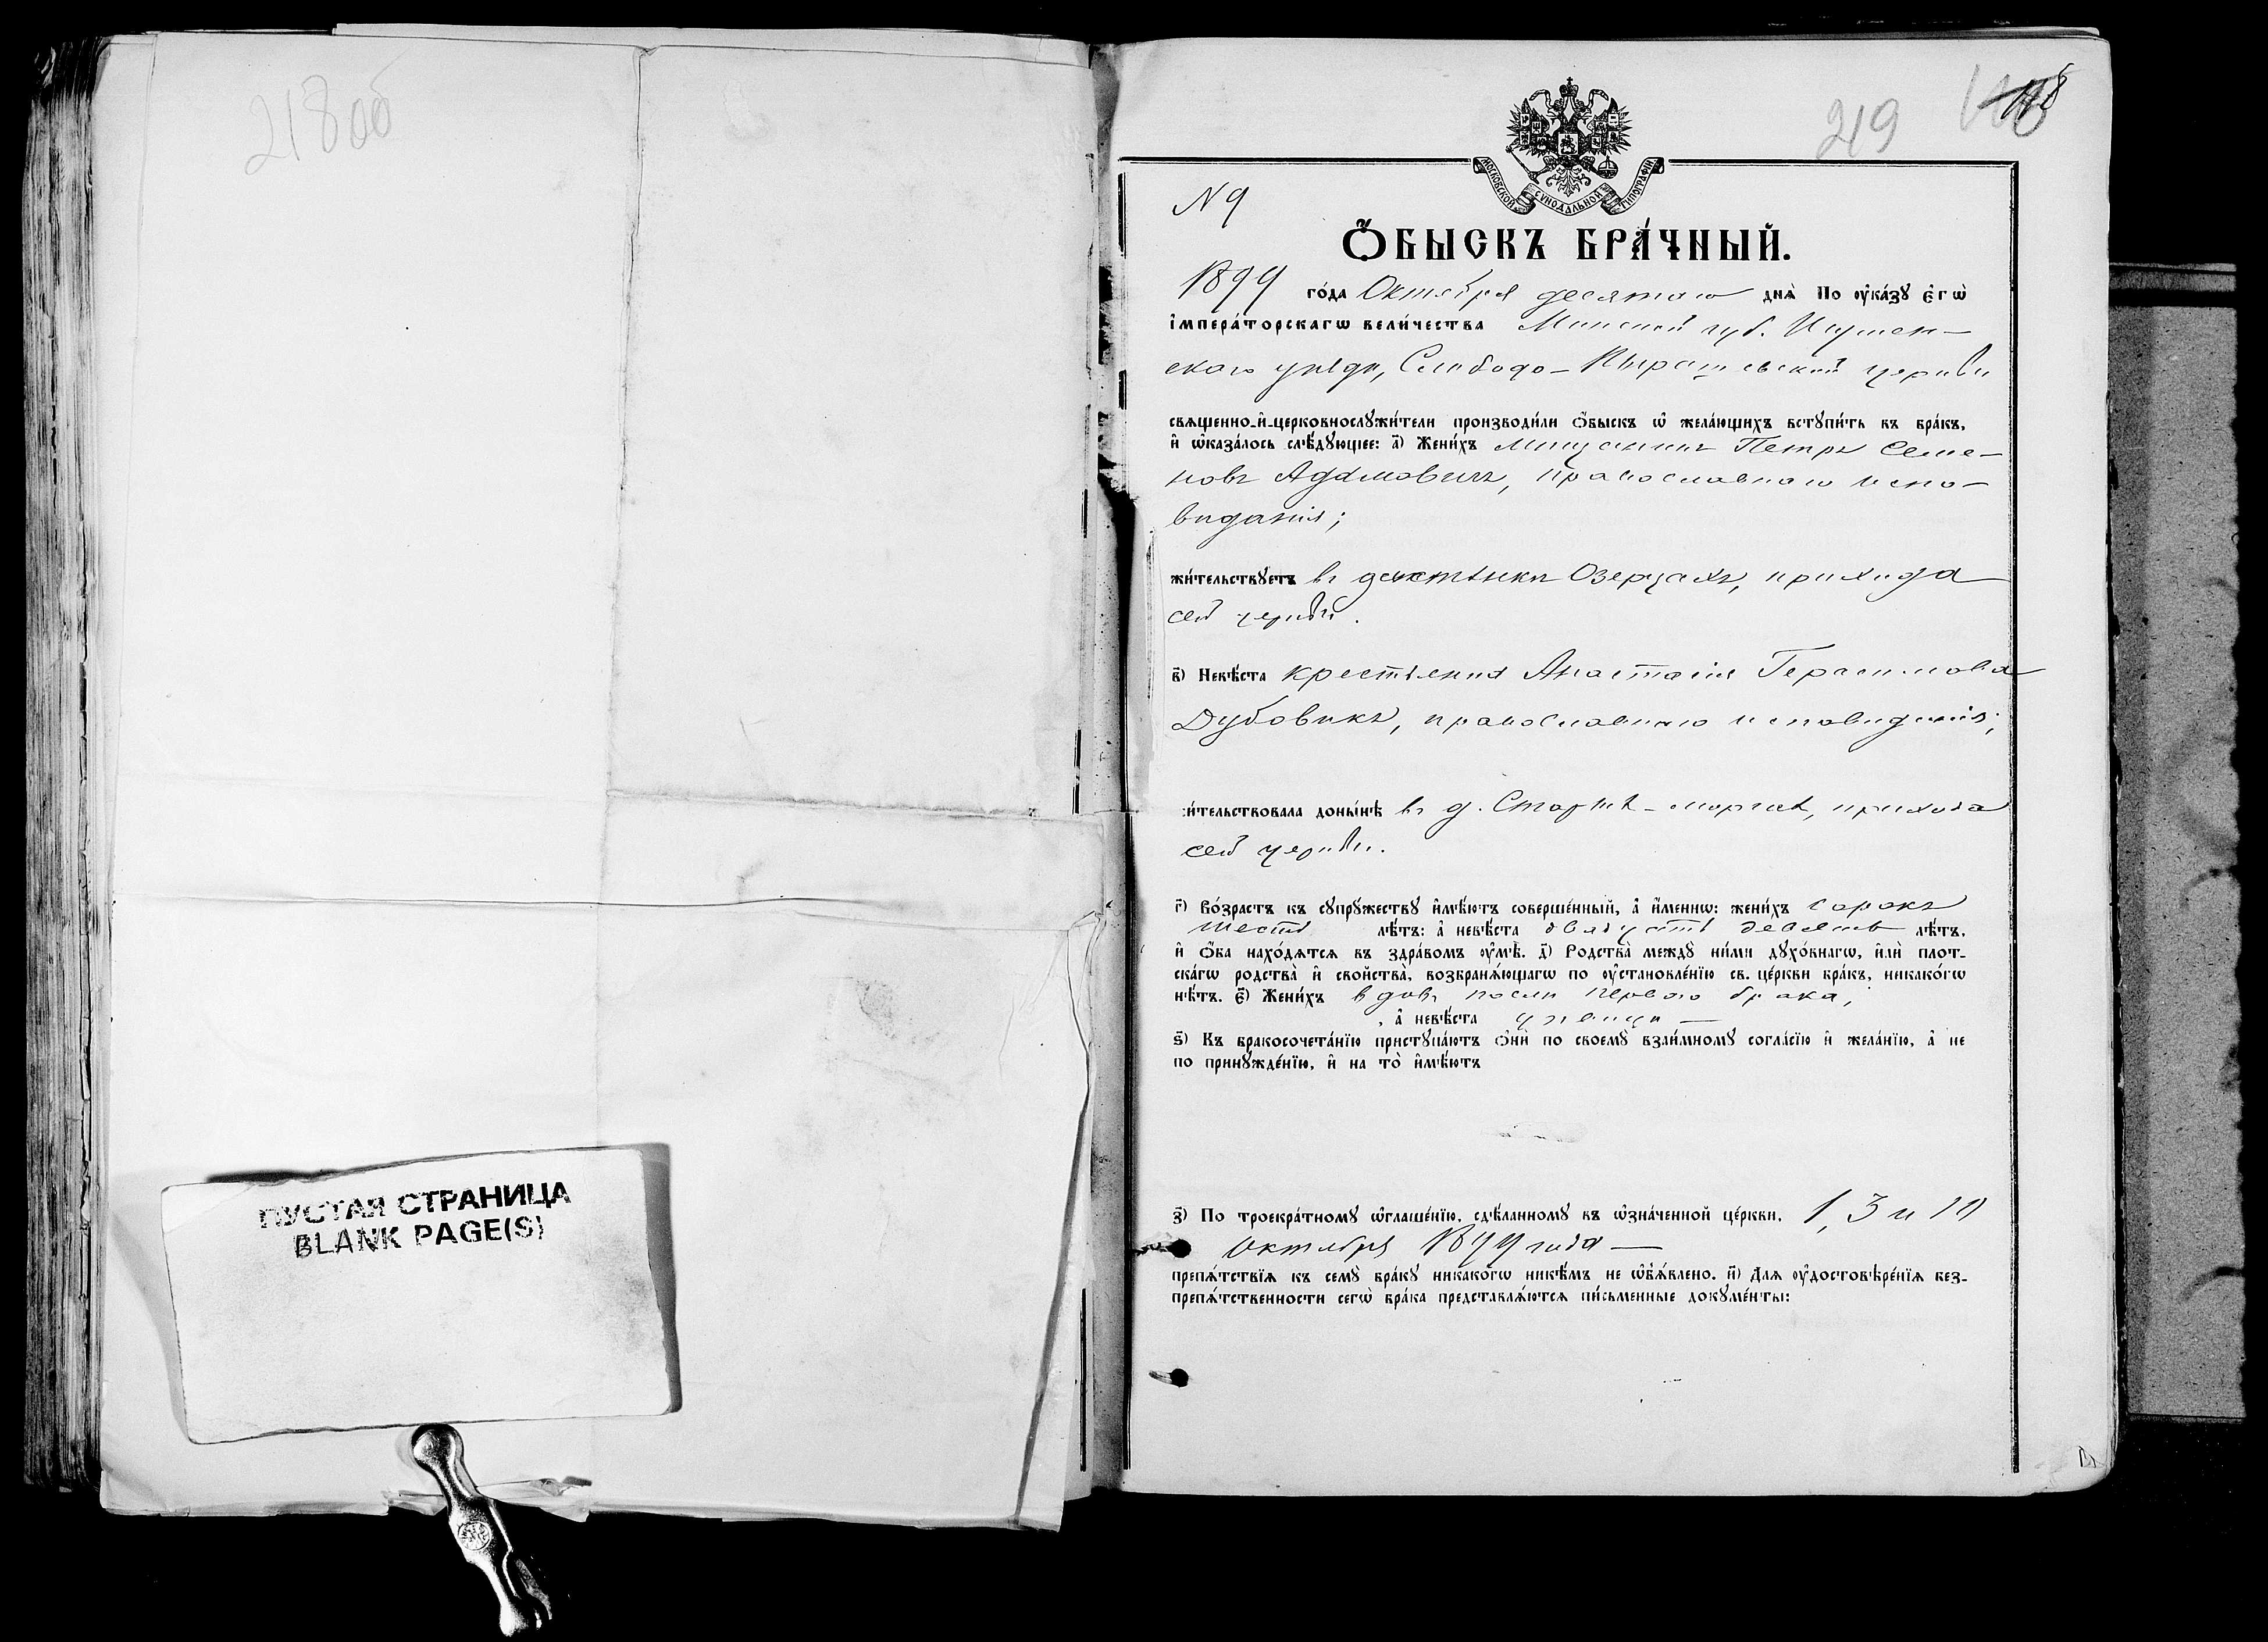 218об
219
118
МОСКОВСКОЙ СѴНОДАЛЬНОЙ ТИПОГРАФІИ
N 9
Ѻ҆БЫСКЪ БРА́ЧНЫЙ.
1899 го́да Октября десятаго днѧ̀ По ᲂу҆ка́зꙋ є҆гѡ̀
і҆мпера́торскагѡ вели́чества Минской губ. Игумен-
скаго уѣзда, Слободо-Пырашевской церкви
свѧщенно-и҆-церковнослꙋжи́тели производи́ли ѻ҆быскъ ѡ҆ жела́ющихъ встꙋпи́ть въ бра́къ,
и҆ ѡ҆каза́лось слѣ́дꙋющее: а҃) Жени́хъ мѣщанинъ Петръ Семе-
новъ Адамовичъ, православнаго испо-
вѣданія;
жи́тельствꙋетъ въ Озерцахъ, прихода
сей церкви.
в҃) Невѣ́ста крестьянка Анастасія Герасимова
Дубовикъ, православнаго исповѣданія;
и́тельствовала доны́нѣ въ д. прихода
сей церкви.
г҃) Во́зрастъ къ сꙋпрꙋ́жествꙋ и҆мѣ́ютъ соверше́нный, а҆ и҆́меннѡ: жени́хъ сорокъ
шесть лѣ́тъ: а҆ невѣ́ста двадцать девять лѣ́тъ,
и҆ ѻ҆́ба нахо́дѧтсѧ въ здра́вомъ ᲂу҆мѣ̀. д҃) Родства̀ междꙋ̀ ни́ми дꙋхо́внагѡ, и҆лѝ плот-
ска́гѡ родства̀ и҆ свойства̀, возбранѧ́ющагѡ по ᲂу҆становле́нїю св. це́ркви бра́къ, никако́гѡ
нѣ́тъ. є҃) Жени́хъ вдовъ послѣ перваго брака,
, а҆ невѣ́ста дѣвица —
ѕ҃) Къ бракосочета́нїю пристꙋпа́ютъ ѻ҆нѝ по своемꙋ̀ взаи́мномꙋ согла́сїю и҆ жела́нїю, а҆ не
по принꙋжде́нїю, и҆ на то̀ и҆мѣ́ютъ
з҃) По троекра́тномꙋ ѡ҆глаше́нїю, сдѣ́ланномꙋ въ ѡ҆зна́ченной це́ркви, 1, 3 и 10
октября 1899 года —
препѧ́тствїѧ къ семꙋ̀ бра́кꙋ никако́гѡ никѣ́мъ не ѡ҆б̾ѧ́влено. и҃) Длѧ ᲂу҆достовѣре́нїѧ без-
препѧ́тственности сегѡ̀ бра́ка представлѧ́ютсѧ пи́сьменные докꙋме́нты:
ПУСТАЯ СТРАНИЦА
BLANK PAGE(S)